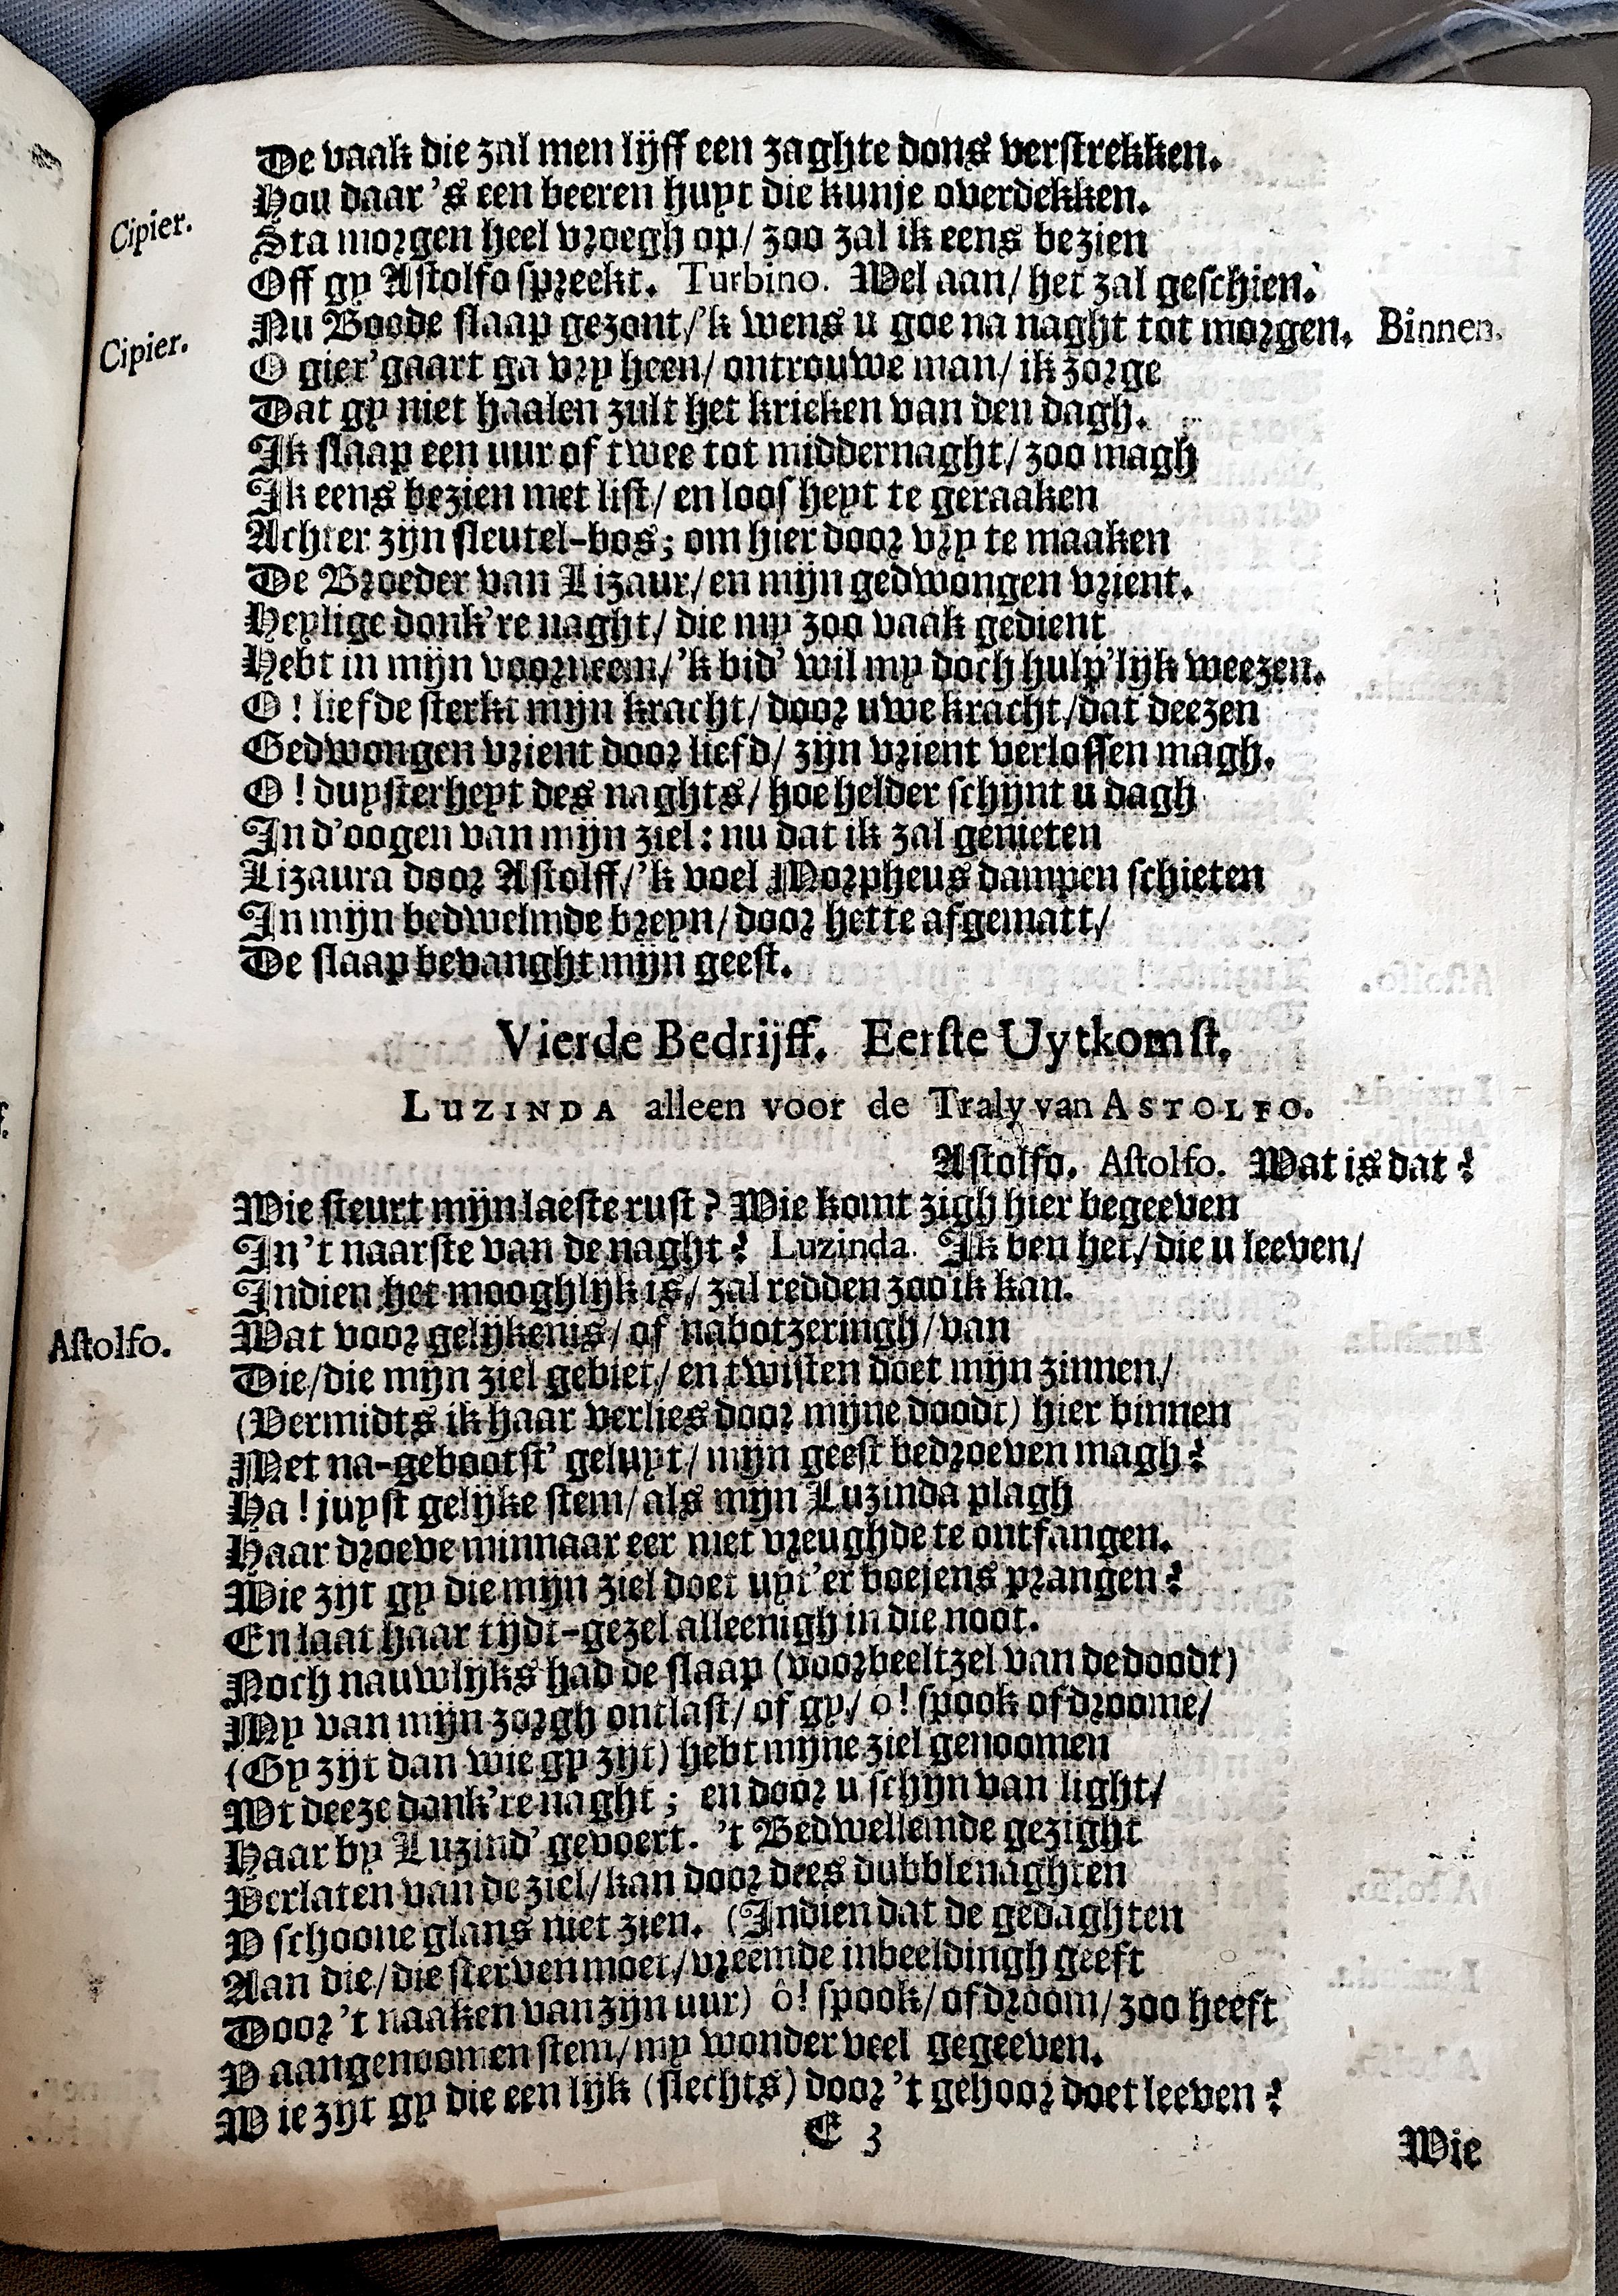 De vaak die zal men lijff een zaghte dons verstrekken.
Hou daar 's een beeren huyt die kunje overdekken.
Cipier. Sta morgen heel vroegh op/ zoo zal ik eens bezien
Off gy Astolfo spreekt. Turbino. Wel aan/ het zal geschien.
Cipier. Nu Boode slaap gezont/'k wens u goe na naght tot morgen. Binnen.
O gier'gaart ga vry heen/ ontrouwe man/ ik zorge
Dat gy niet haalen zult het krieken van den dagh.
Ik slaap een uur of twee tot middernaght/ zoo magh
Ik eens bezien met list/ en loosheyt te geraaken
Achter zijn sleutel-bos; om hier door vry te maaken
De Broeder van Lizaur/ en mijn gedwongen vrient.
Heylige donk're naght/ die my zoo vaak gedient
Hebt in mijn voorneem/'k bid' wil my doch hulp'lijk weezen.
O! liefde sterkt mijn kracht/ door uwe kracht/ dat deezen
Gedwongen vrient door liefd/ zijn vrient verlossen magh.
O! duysterheyt des naghts/ hoe helder schijnt u dagh
In d'oogen van mijn ziel: nu dat ik zal genieten
Lizaura door Astolff/'k voel Morpheus dampen schieten
In mijn bedwelmde breyn/ door hette afgematt/
De slaap bevanght mijn geest.
Vierde Bedrijff. Eerste Uytkomst.
LUZINDA alleen voor de Traly van ASTOLFO.
Astolfo. Astolfo. Wat is dat?
Wie steurt mijn laeste rust? Wie komt zigh hier begeeven
In 't naarste van de naght? Luzinda. Ik ben het/ die u leeven/
Indien het mooghlijk is/ zal redden zoo ik kan.
Astolfo. Wat voor gelijkenis/ of nabotzeringh/ van
Die/ die mijn ziel gebiet/ en twisten doet mijn zinnen/
(Vermidts ik haar verlies door mijne doodt) hier binnen
Met na-gebootst' geluyt/ mijn geest bedroeven magh?
Ha! juyst gelijke stem/ als mijn Luzinda plagh
Haar droeve minnaar eer met vreughde te ontfangen.
Wie zijt gy die mijn ziel doet uyt'er boejens prangen?
En laat haar tijdt-gezel alleenigh in die noot.
Noch nauwlijks had de slaap (voorbeeltzel van de doodt)
My van mijn zorgh ontlast/ of gy/ ô! spook of droome/
(Gy zijt dan wie gy zijt) hebt mijne ziel genoomen
Wt deeze donk're naght; en door u schijn van light/
Haar by Luzind' gevoert. 't Bedwellemde gezight
Verlaten van de ziel/ kan door dees dubble naghten
V schoone glans niet zien. (Indien dat de gedaghten
Aan die/ die sterven moet/ vreemde inbeeldingh geeft
Door 't naaken van zijn uur) ô! spook/ of droom/ zoo heeft
V aangenoomen stem/ my wonder veel gegeeven.
Wie zijt gy die een lijk (slechts) door 't gehoor doet leeven?
E 3
Wie